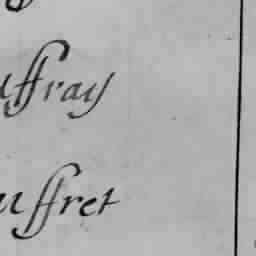 uffray
uffret